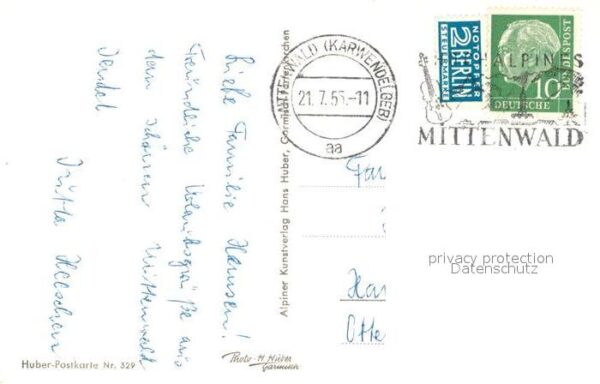 Liebe Familie Hansen!
Freundliche Urlaubsgrüße aus
dem schönen Mittenwald
sendet
Jutta
Huber-Postkarte Nr. 329
Photo-H. Huber
Garmisch
Alpiner Kunstverlag Hans Huber, Garmisch-Partenkirchen
MITTENWALD (KARWENDELGEB)
21.7.55.-11
aa
NOTOPFER
2 BERLIN
STEUERMARKE
DEUTSCHE BUNDESPOST
10
ALPINES
MITTENWALD
Fam
Han
Otte
privacy protection
Datenschutz